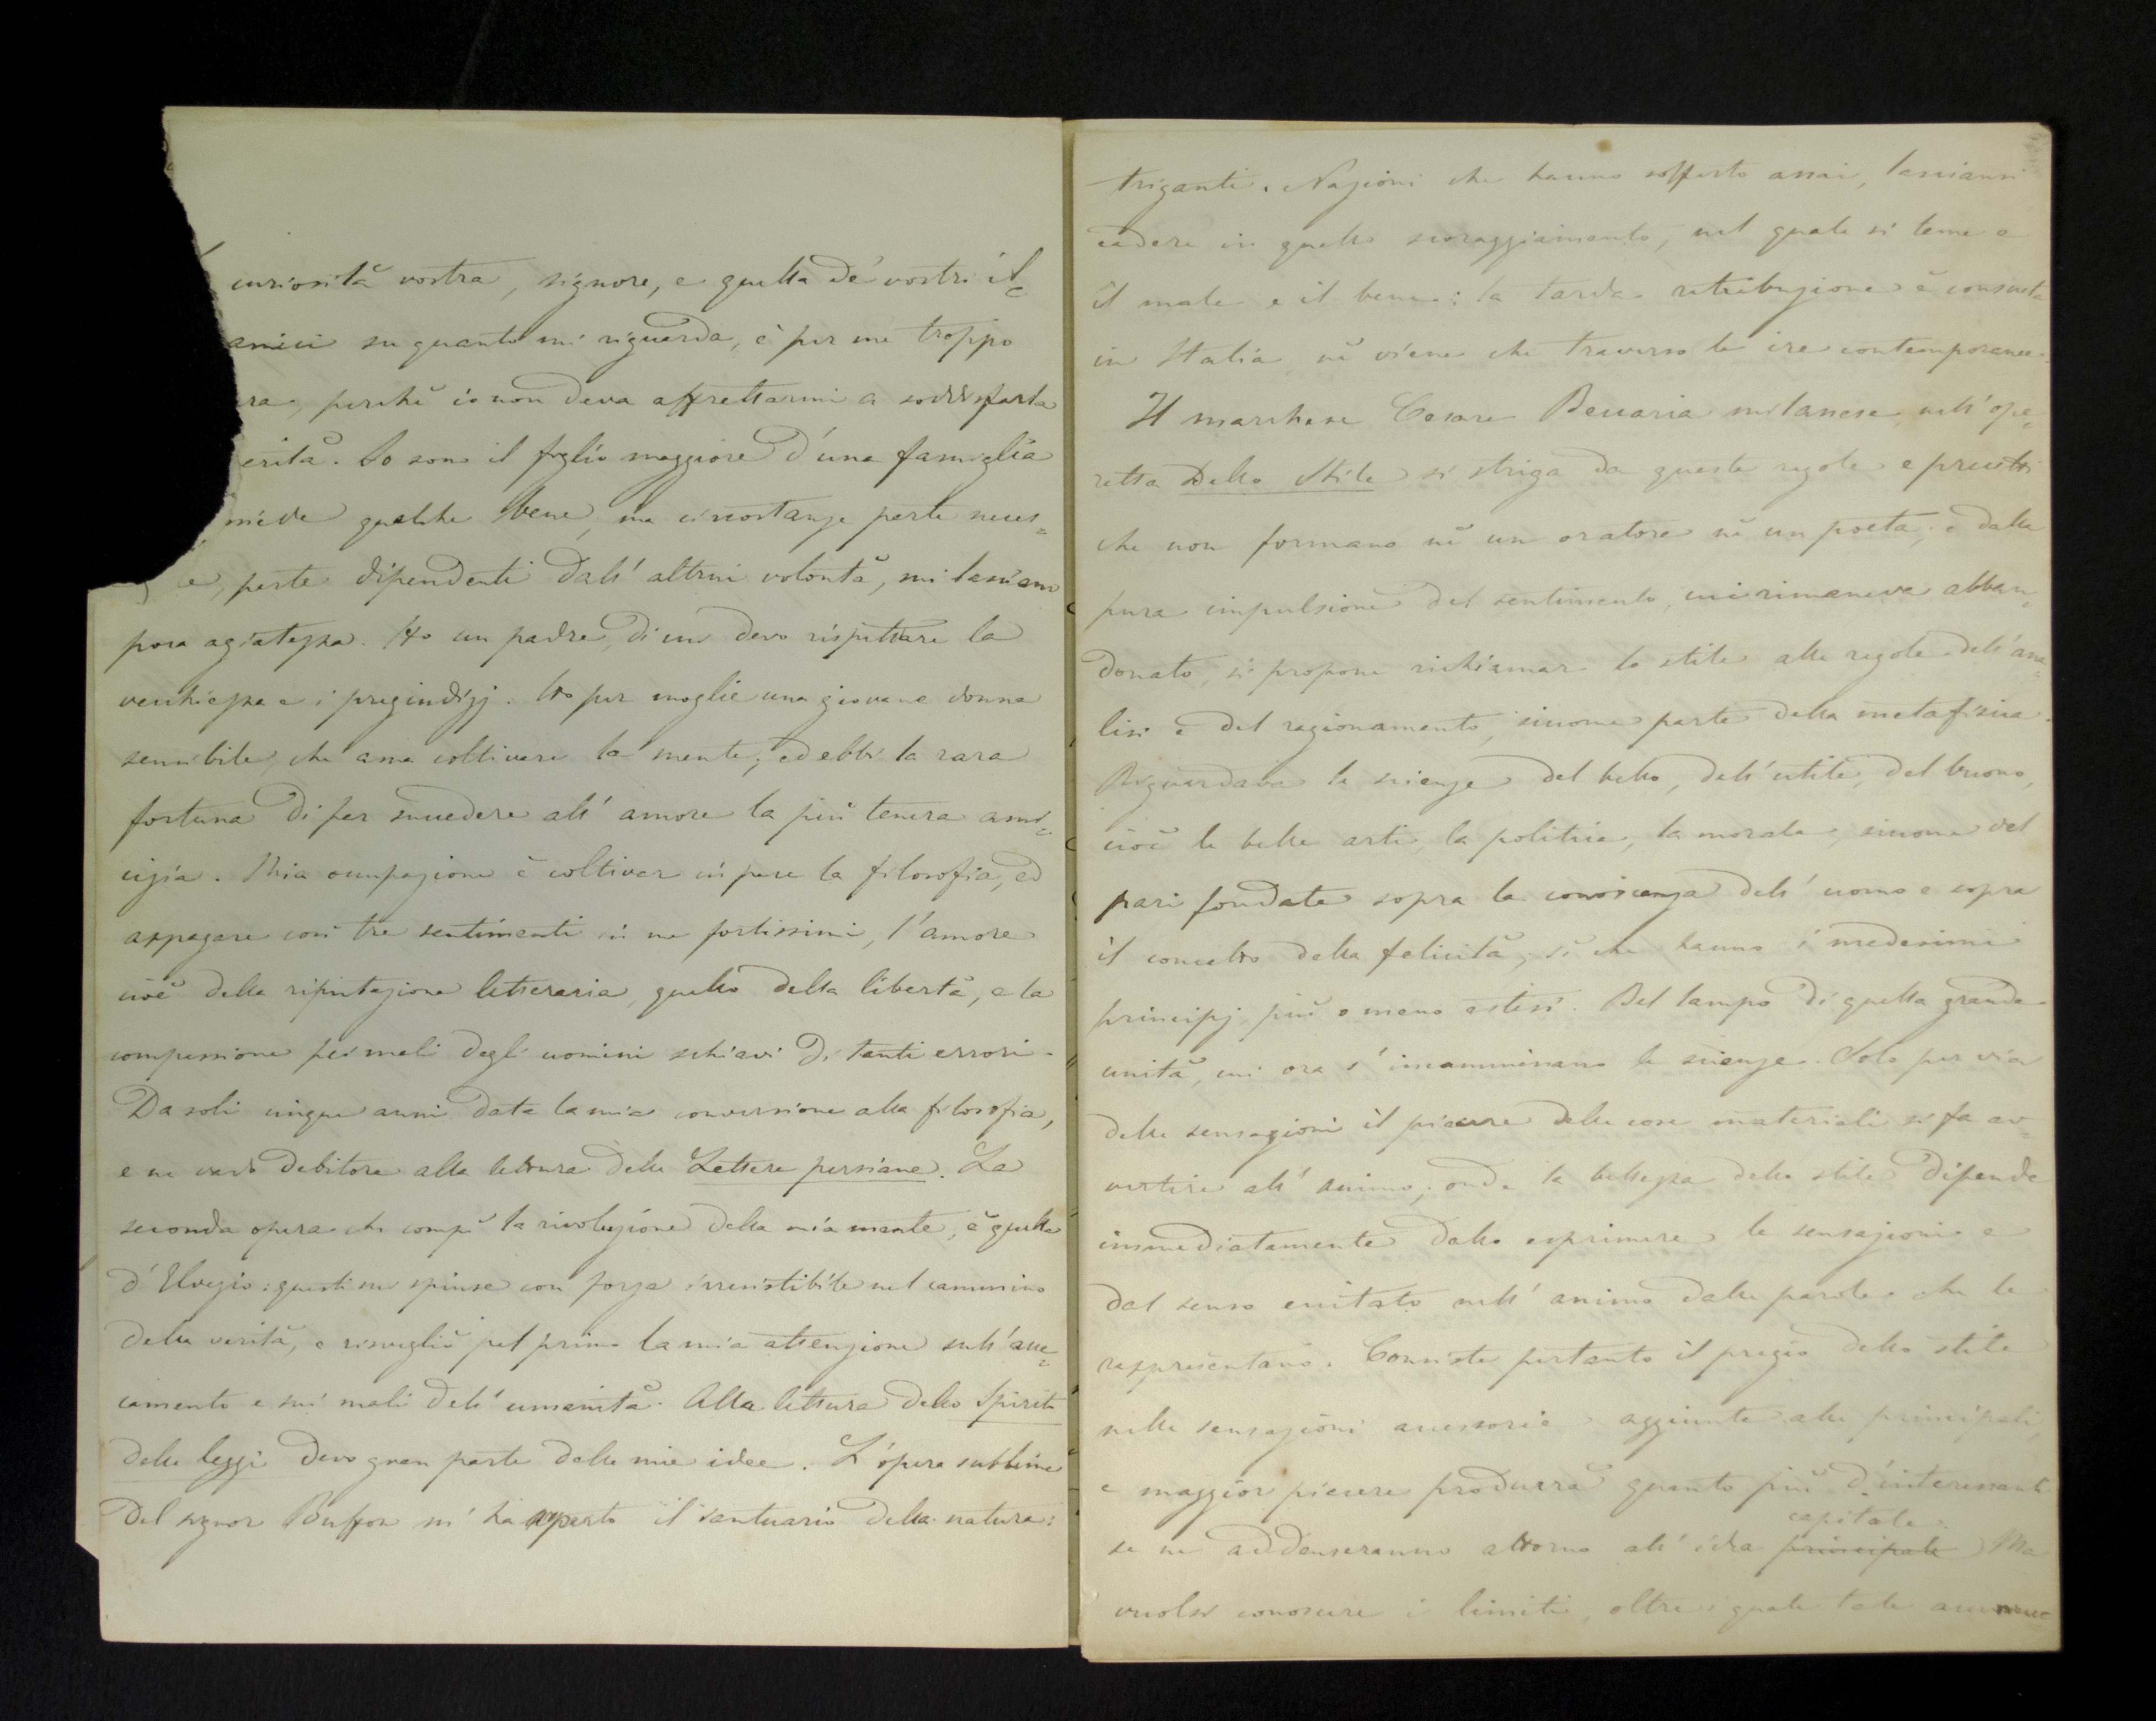 curiosità vostra, signore, e quella de' vostri il=
amici su quanto mi riguarda, è per me troppo
ra, perchè io non deva affrettarmi a soddisfarla
erità. Io sono il figlio maggiore d'una famiglia
siede qualche bene, ma circostanze parte neces=
e, parte dipendenti dall' altrui volontà, mi lasciano
poca agiatezza. Ho un padre, di cui devo rispettare la
vecchiezza e i pregiudizj. Ho per moglie una giovane donna
sensibile, che ama coltivare la mente; ed ebbi la rara
fortuna di far succedere all' amore la più tenera ami=
cizia. Mia occupazione è coltivar in pace la filosofia, ed
appagare così tre sentimenti in me fortissimi, l'amore
cioè della riputazione letteraria, quello della libertà, e la
compassione pei mali degli uomini schiavi di tanti errori.
Da soli cinque anni data la mia conversione alla filosofia,
e ne vado debitore alla lettura delle Lettere persiane. La
seconda opera che compì la rivoluzione della mia mente, è quella
d'Elvezio: questi mi spinse con forza irresistibile nel cammino
della verità, e risvegliò pel primo la mia attenzione sull'acce=
camento e sui mali dell' umanità. Alla lettura dello Spirito
delle leggi devo gran parte delle mie idee. L'opera sublime
del signor Buffon m' ha aperto il santuario della natura:
triganti. Nazioni che hanno sofferto assai, lasciansi
cadere in quello scoraggiamento, nel quale si teme e
il male e il bene: la tarda retribuzione è consueta
in Italia, nè viene che traverso le ire contemporanee.
Il marchese Cesare Beccaria milanese, nell'ope=
retta Dello Stile si striga da queste regole e precetti
che non formano nè un oratore nè un poeta; e dalla
pura impulsione del sentimento, cui rimaneva abban=
donato, si propone richiamar lo stile alle regole dell'ana=
lisi e del ragionamento, siccome parte della metafisica.
Riguardava le scienze del bello, dell'utile, del buono,
cioè le belle arti, la politica, la morale, siccome del
pari fondate sopra la conoscenza dell' uomo e sopra
il concetto della felicità; sì che hanno i medesimi
principj più o meno estesi. Bel lampo di quella grande
unità, cui ora s' incamminano le scienze. Solo per via
delle sensazioni il piacere delle cose materiali si fa av=
vertire all' animo; onde la bellezza dello stile dipende
immediatamente dallo esprimere le sensazioni e
dal senso eccitato nell' animo dalle parole che le
rappresentano. Consiste pertanto il pregio dello stile
nelle sensazioni accessorie aggiunte alle principali,
e maggior piacere produrrà quanto più d'interessanti
capitale.
se ne addenseranno attorno all' idea principale Ma
vuolsi conoscere i limiti, oltre i quali tale